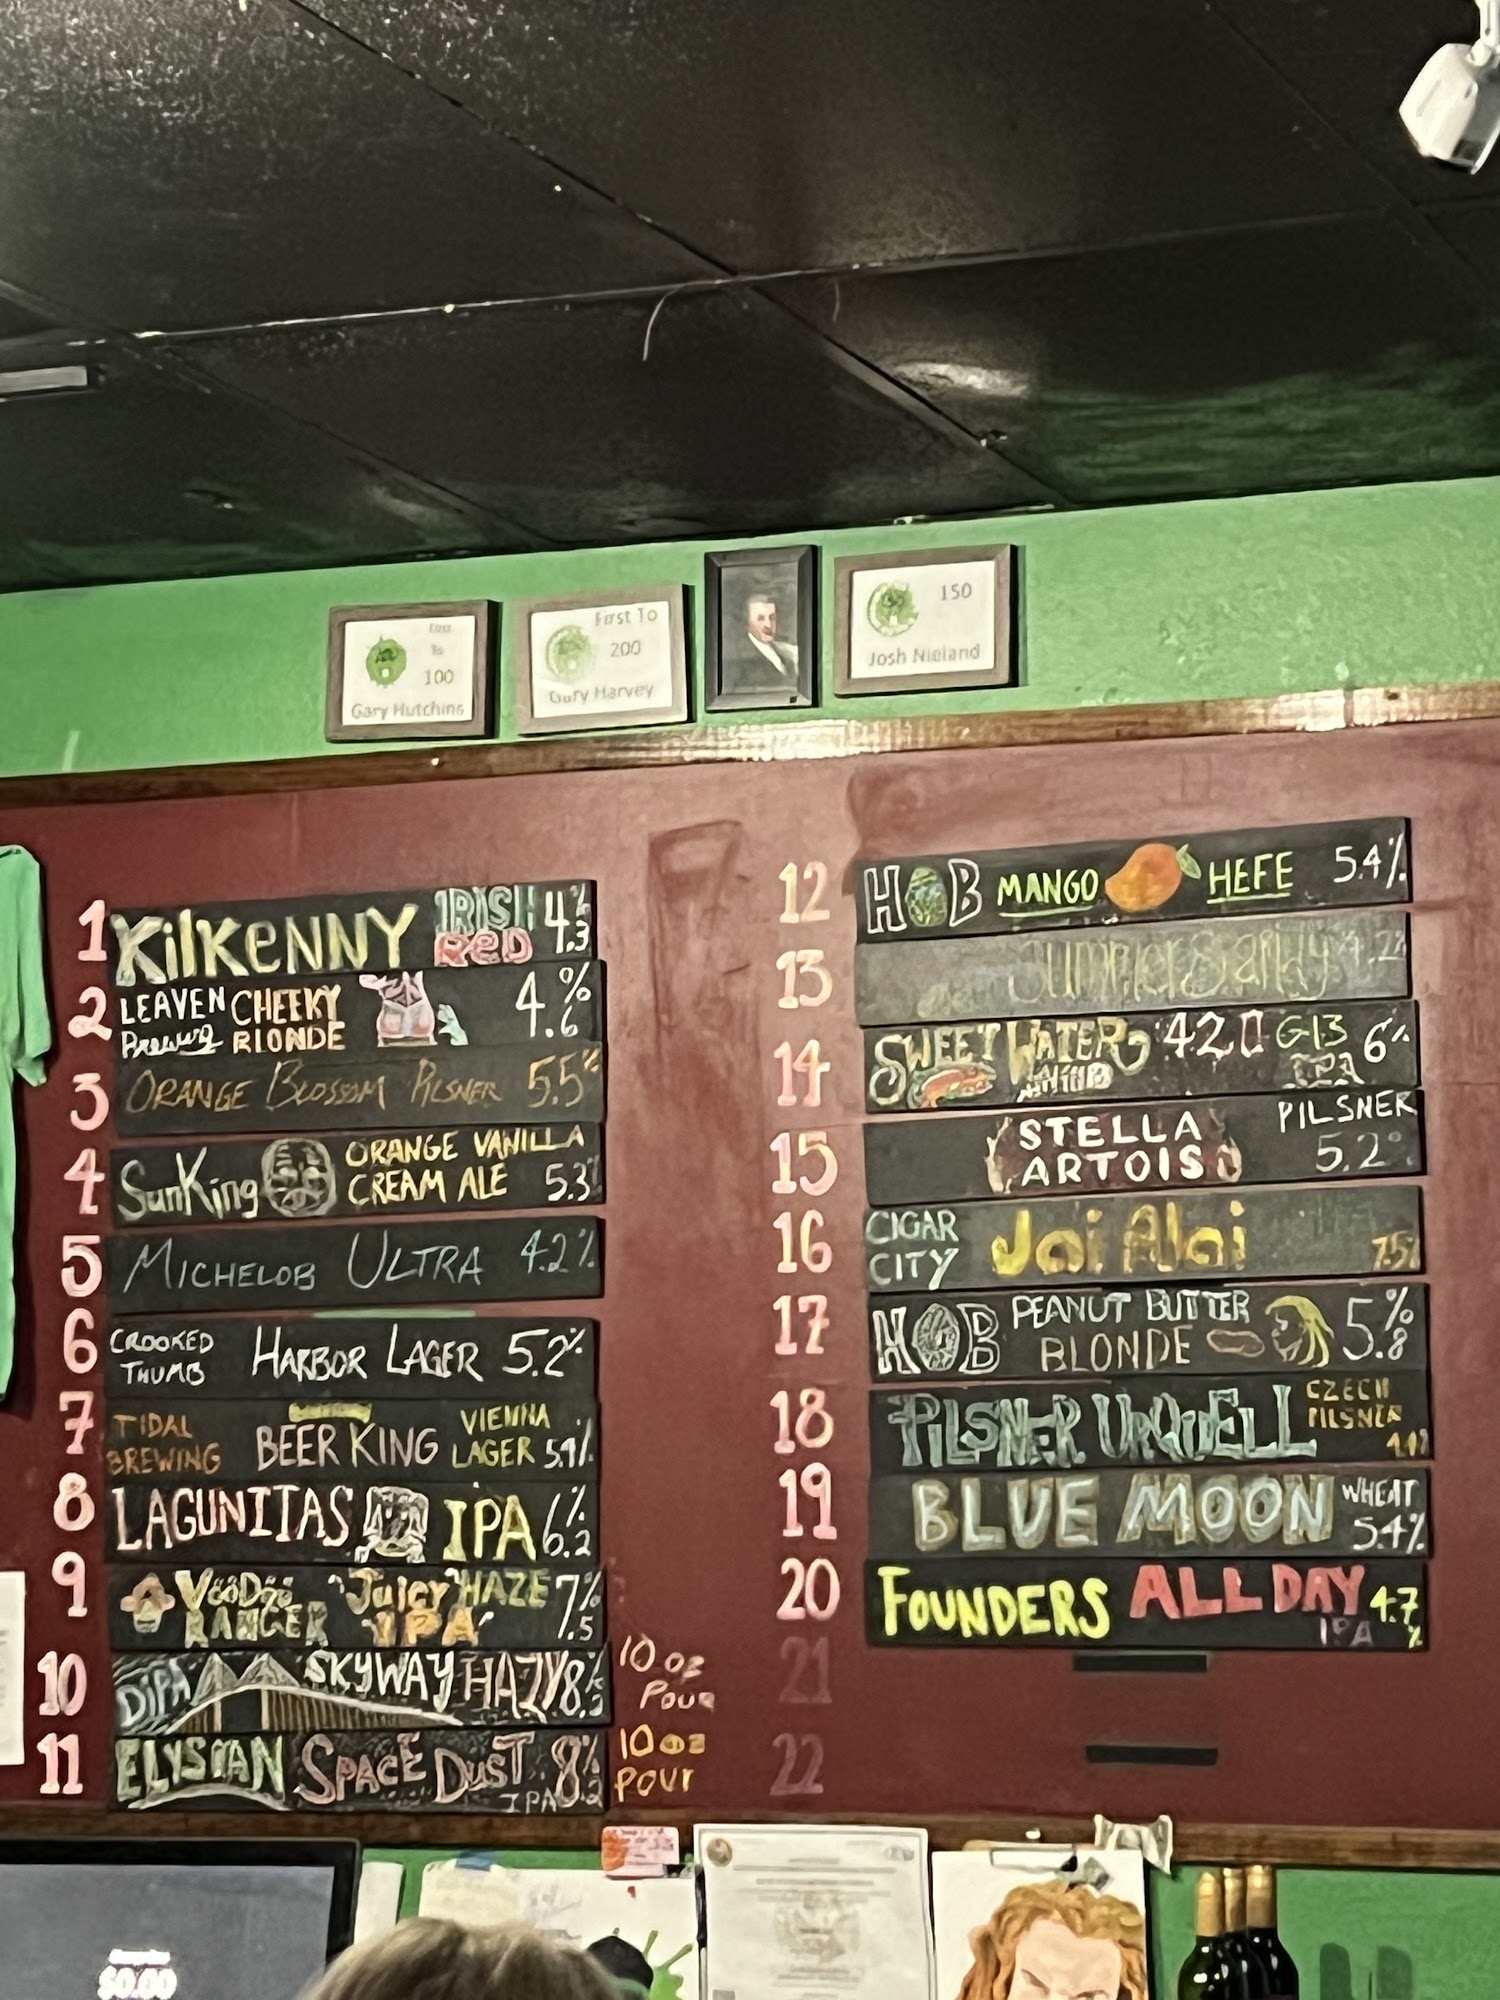 First
To
100
Gary Hutchins
First To
200
Gary Harvey
150
Josh Nieland
1 KilKeNNY IRISH RED 4.3%
2 LEAVEN Brewing CHEEKY BLONDE 4.6%
3 ORANGE BLOSSOM PILSNER 5.5%
4 SunKing ORANGE VANILLA CREAM ALE 5.3%
5 MICHELOB ULTRA 4.2%
6 CROOKED THUMB HARBOR LAGER 5.2%
7 TIDAL BREWING BEER KING VIENNA LAGER
8 LAGUNITAS IPA 6.2%
9 VooDoo RANGER "Juicy HAZE IPA" 7.5%
10 DIPA SKYWAY HAZY 10 oz Pour
11 ELYSIAN SPACE DUST IPA 8.2% 10 oz POUr
12 HOB MANGO HEFE 5.4%
13 Summer Shandy 4.2%
14 SWEET WATER 420 G13 IPA 6%
15 STELLA ARTOIS PILSNER 5.2
16 CIGAR CITY Jai Alai 7.5%
17 HOB PEANUT BUTTER BLONDE 5.8%
18 PILSNER URQUELL CZECH PILSNER
19 BLUE MOON WHEAT 5.4%
20 FOUNDERS ALL DAY IPA 4.7%
21
22
$0.00